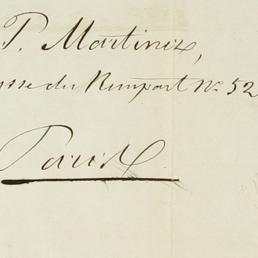 P. Martinez,
sse du Rempart No. 52
Paris